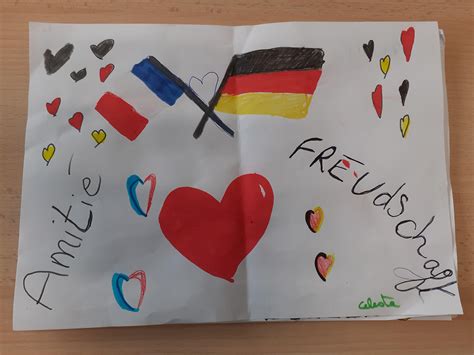 Amitié
FREUdschaft
celesta